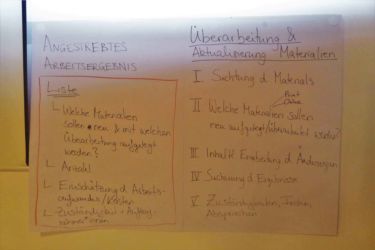 ANGESTREBTES
ARBEITSERGEBNIS
Liste
Welche Materialien
sollen neu & mit welchen
Überarbeitung aufgelegt
werden?
Anzahl
Einschätzung d. Arbeits-
aufwandes/Kosten
Zuständigkeit +
Überarbeitung &
Aktualisierung Materialien
I Sichtung d Materials
Print
Online
II Welche Materialien sollen
neu aufgelegt/überarbeitet werden?
III Inhaltl. Erarbeitung d Änderungen
IV Sicherung d Ergebnisse
V Zuständigkeiten,
Absprachen